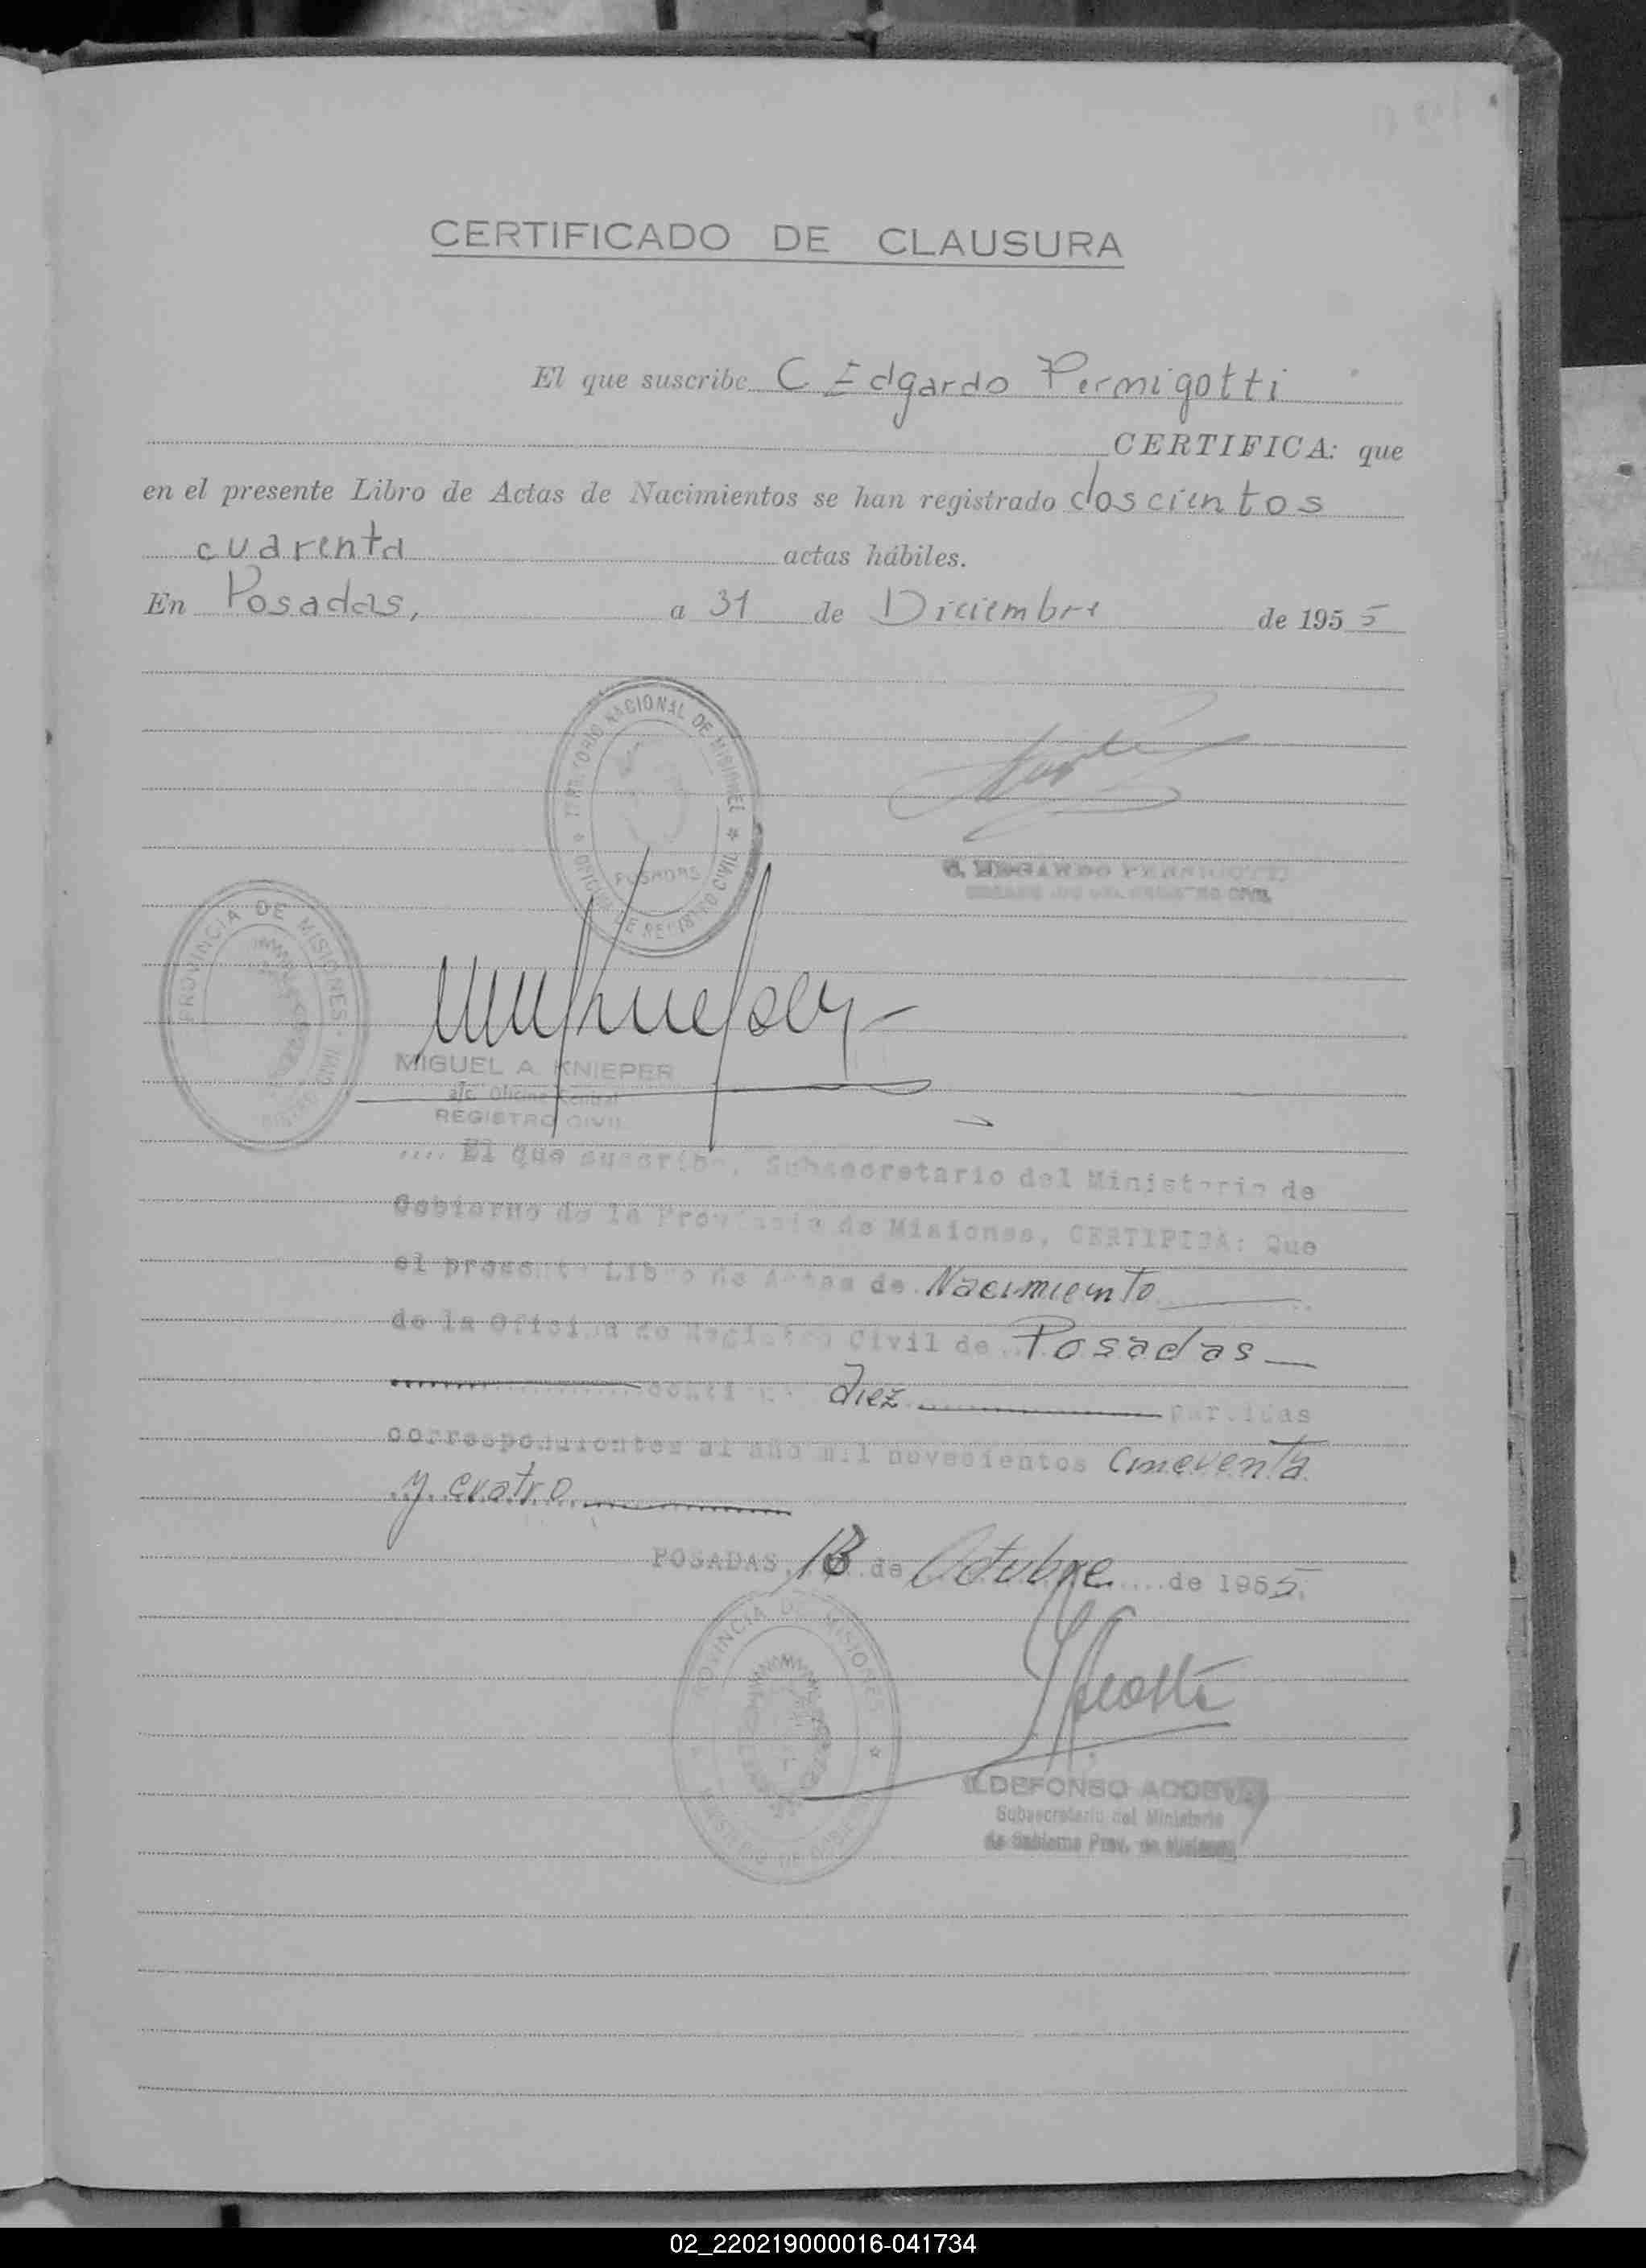 CERTIFICADO DE CLAUSURA
El que suscribe C Edgardo Permigotti
CERTIFICA: que
en el presente Libro de Actas de Nacimientos se han registrado doscientos
cuarenta actas hábiles.
En Posadas, a 31 de Diciembre de 1955
TERRITORIO NACIONAL DE MISIONES
POSADAS
OFICINA DE REGISTRO CIVIL
C. EDGARDO PERMIGOTTI
REGISTRO CIVIL
PROVINCIA DE MISIONES
MIGUEL A. KNIEPER
a/c. Oficina Central
REGISTRO CIVIL
.... El que suscribe, Subsecretario del Ministerio de
Gobierno de la Provincia de Misiones, CERTIFICA: Que
el presente Libro de Actas de Nacimiento
de la Oficina de Registro Civil de Posadas
contiene diez partidas
correspondientes al año mil novecientos cincuenta
y cuatro
POSADAS, de Octubre de 1955.
PROVINCIA DE MISIONES
ILDEFONSO ACOSTA
Subsecretario del Ministerio
de Gobierno Prov. de Misiones
02_220219000016-041734